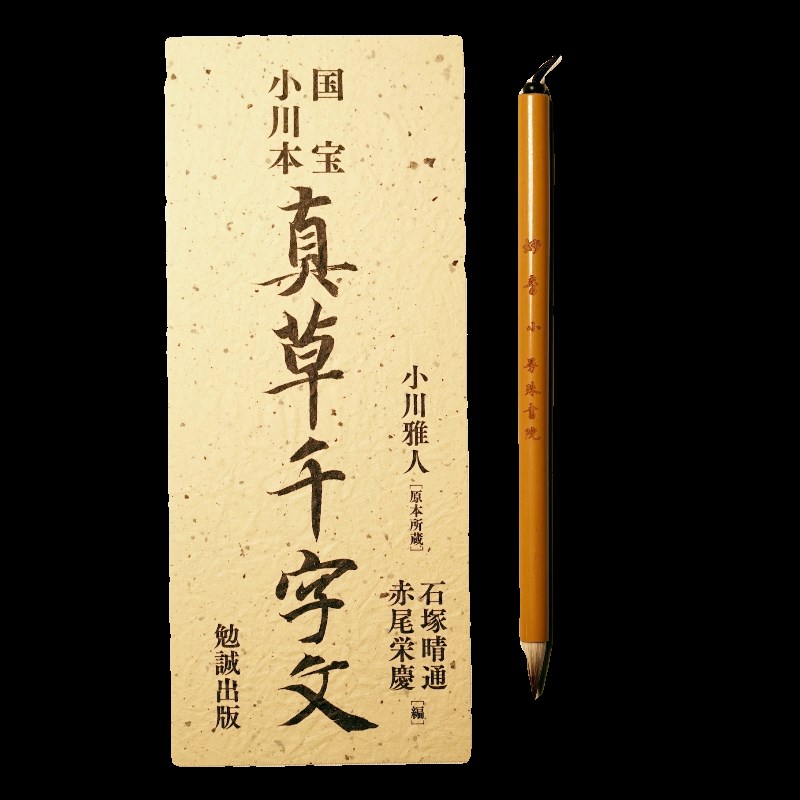 国宝
小川本
真草千字文
小川雅人［原本所蔵］
石塚晴通
赤尾栄慶［編］
勉誠出版